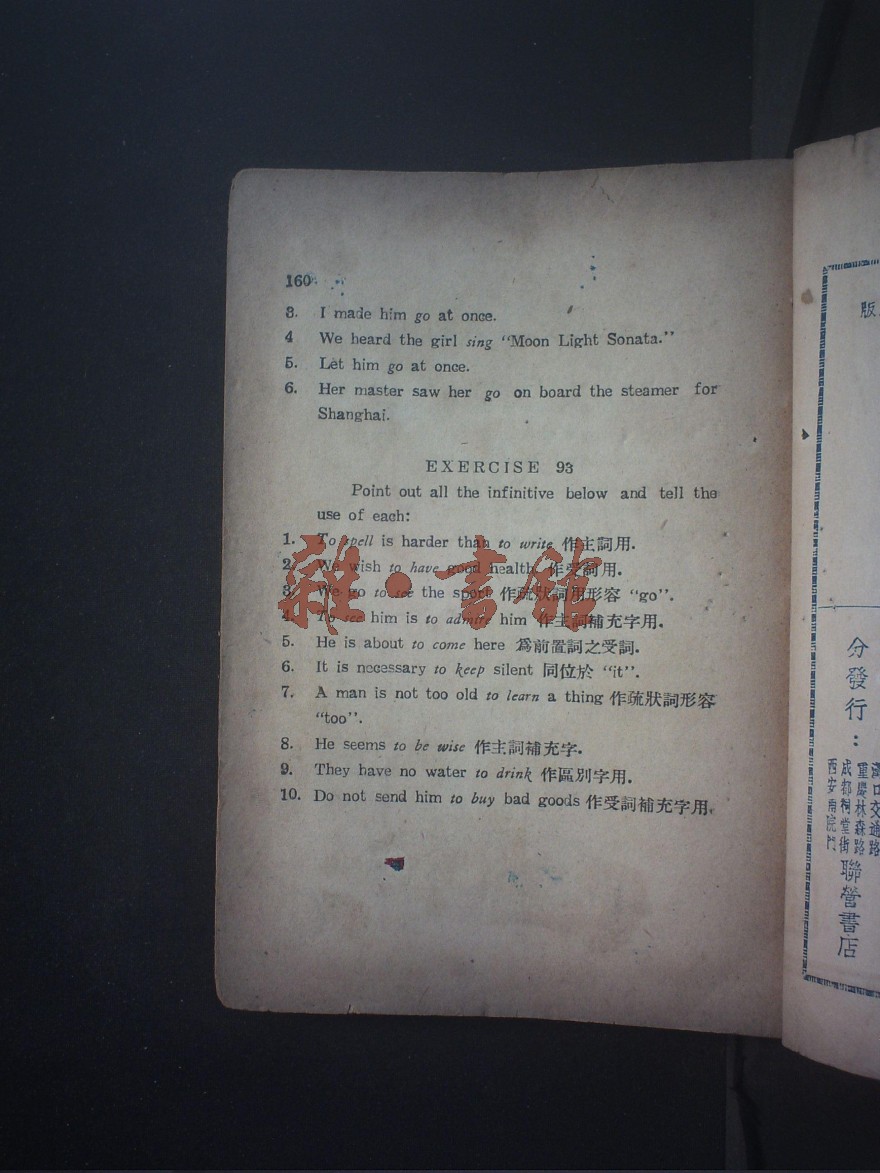 160
3. I made him go at once.
4 We heard the girl sing “Moon Light Sonata.”
5. Let him go at once.
6. Her master saw her go on board the steamer for
Shanghai.
EXERCISE 93
Point out all the infinitive below and tell the
use of each:
1. To spell is harder than to write 作主詞用.
2. We wish to have good health 作受詞用.
3. We go to see the sport 作疏狀詞用形容 “go”.
4. To see him is to admire him 作主詞補充字用.
5. He is about to come here 爲前置詞之受詞.
6. It is necessary to keep silent 同位於 “it”.
7. A man is not too old to learn a thing 作疏狀詞形容
“too”.
8. He seems to be wise 作主詞補充字.
9. They have no water to drink 作區別字用.
10. Do not send him to buy bad goods 作受詞補充字用.
雜·書館
版
分發行：
漢口交通路
重慶林森路
成都祠堂街
西安南院門
聯營書店